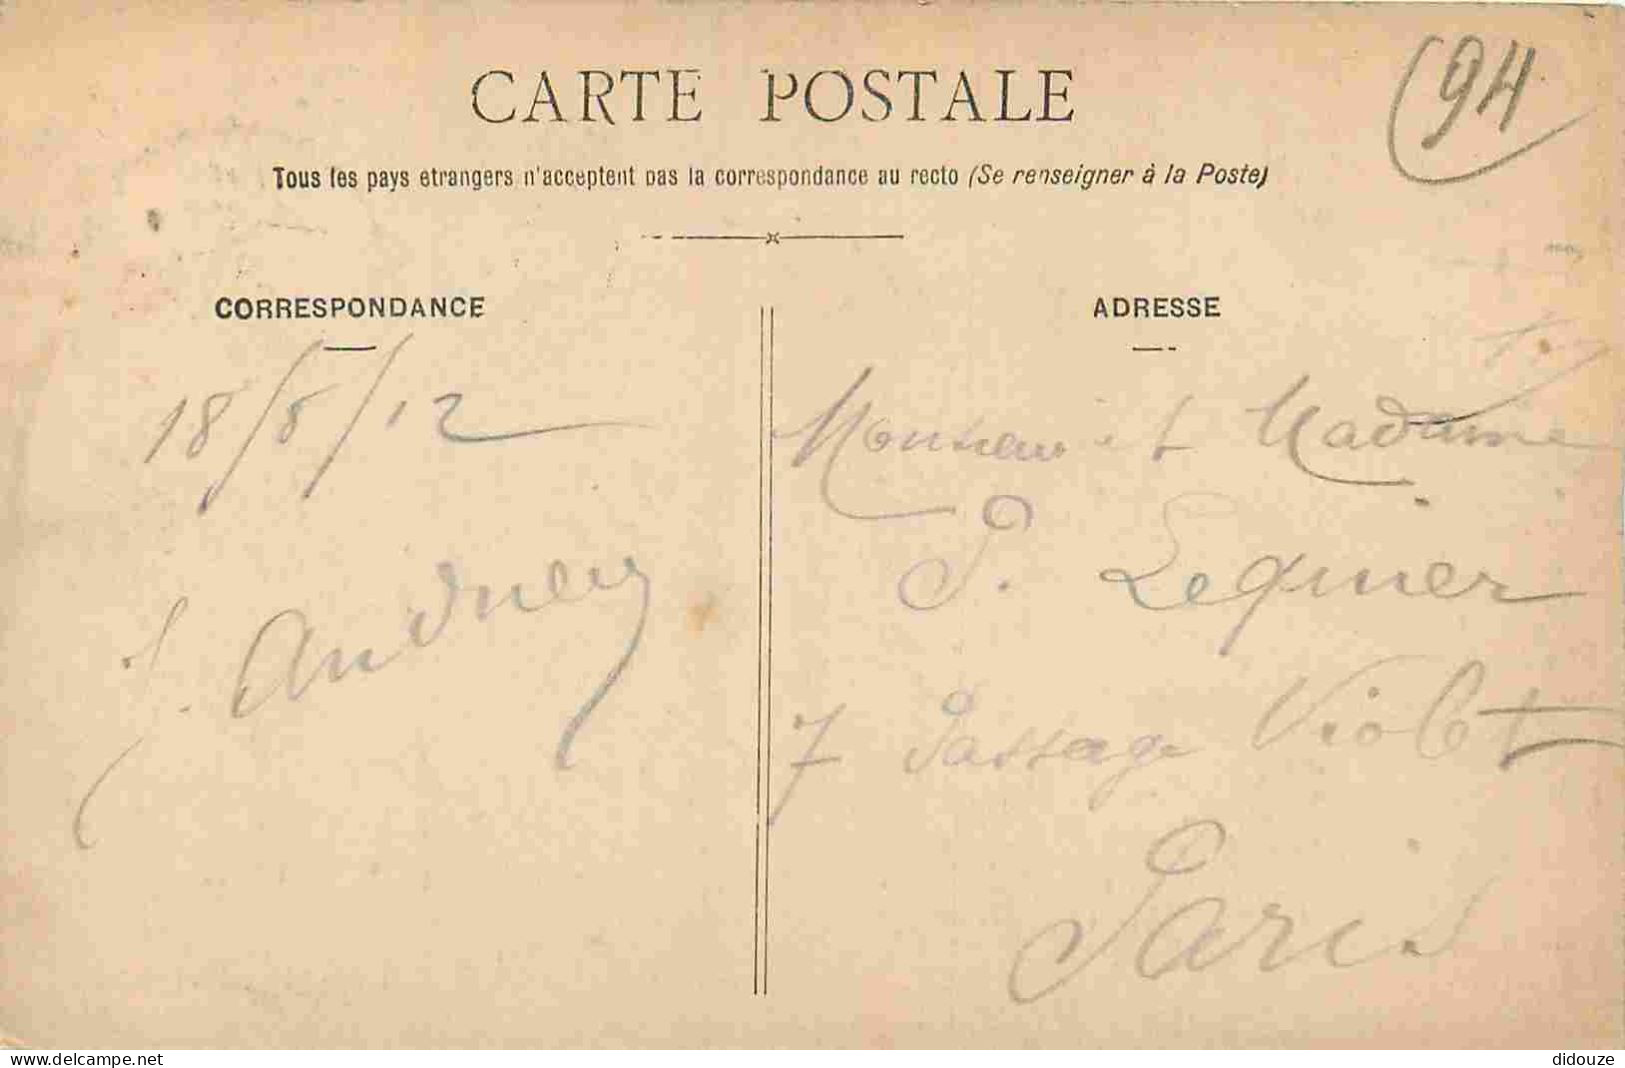 94
CARTE POSTALE
Tous les pays etrangers n'acceptent pas la correspondance au recto (Se renseigner à la Poste)
CORRESPONDANCE
ADRESSE
18/8/12
Monsieur et Madame
P. Leqimer
7 Passage Violet
Paris
www.delcampe.net
didouze